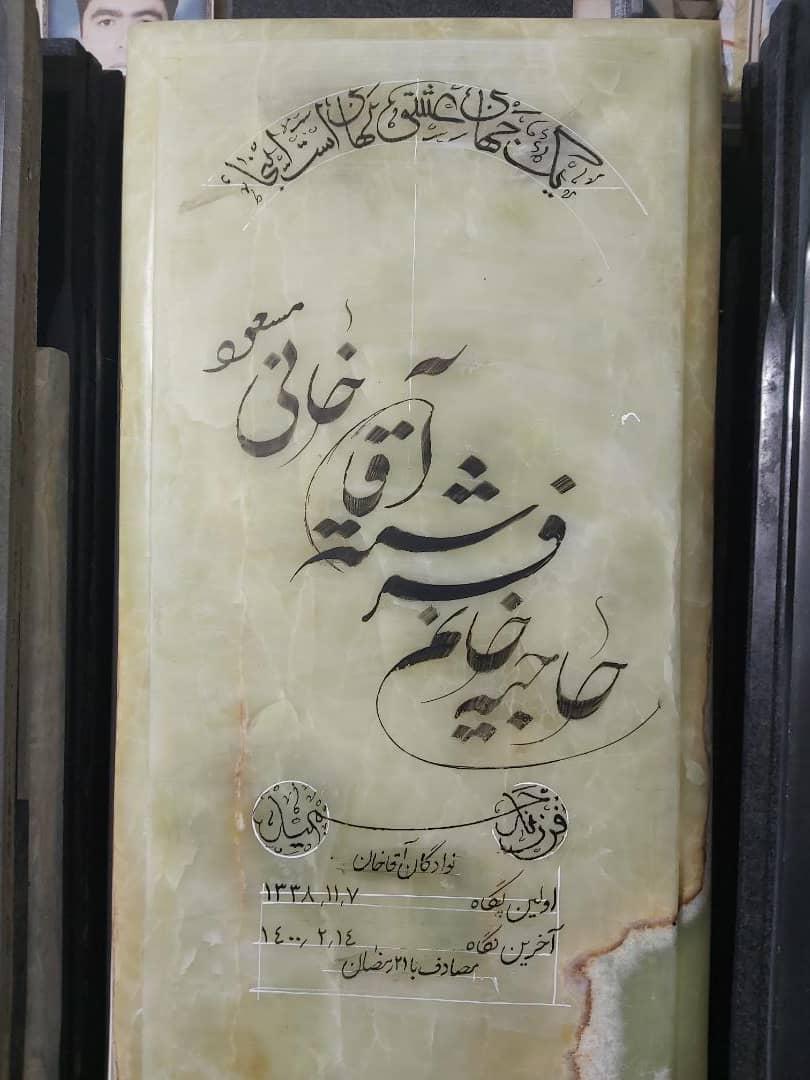 یک جهان عشق نهان است اینجا
حاجیه خانم
فرشته
آقا خانی
مسعود
فرزند جمیل
نوادگان آقاخان
اولین پگاه ۱۳۳۸٫۱۱٫۷
آخرین نگاه ۱۴۰۰٫۲٫۱۴
مصادف با ۲۱ رمضان